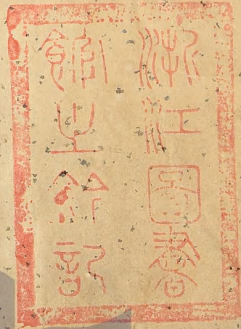 浙江圖書
館之鈐記